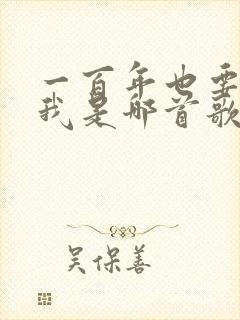 一百年也要
我是那首歌
吴保善